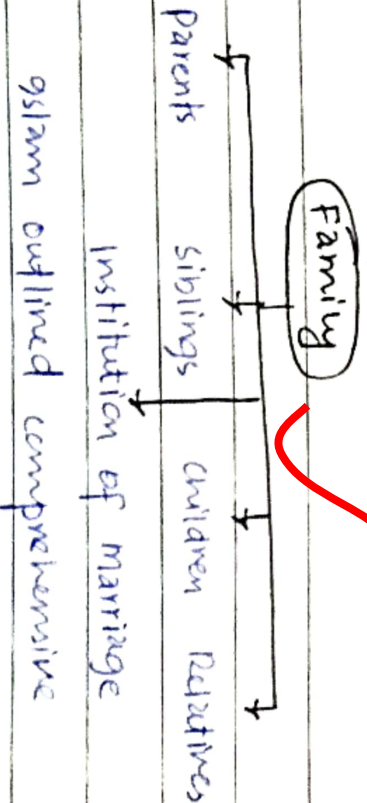 Family
Parents siblings children Relatives
Institution of marriage
Islam outlined comprehensive